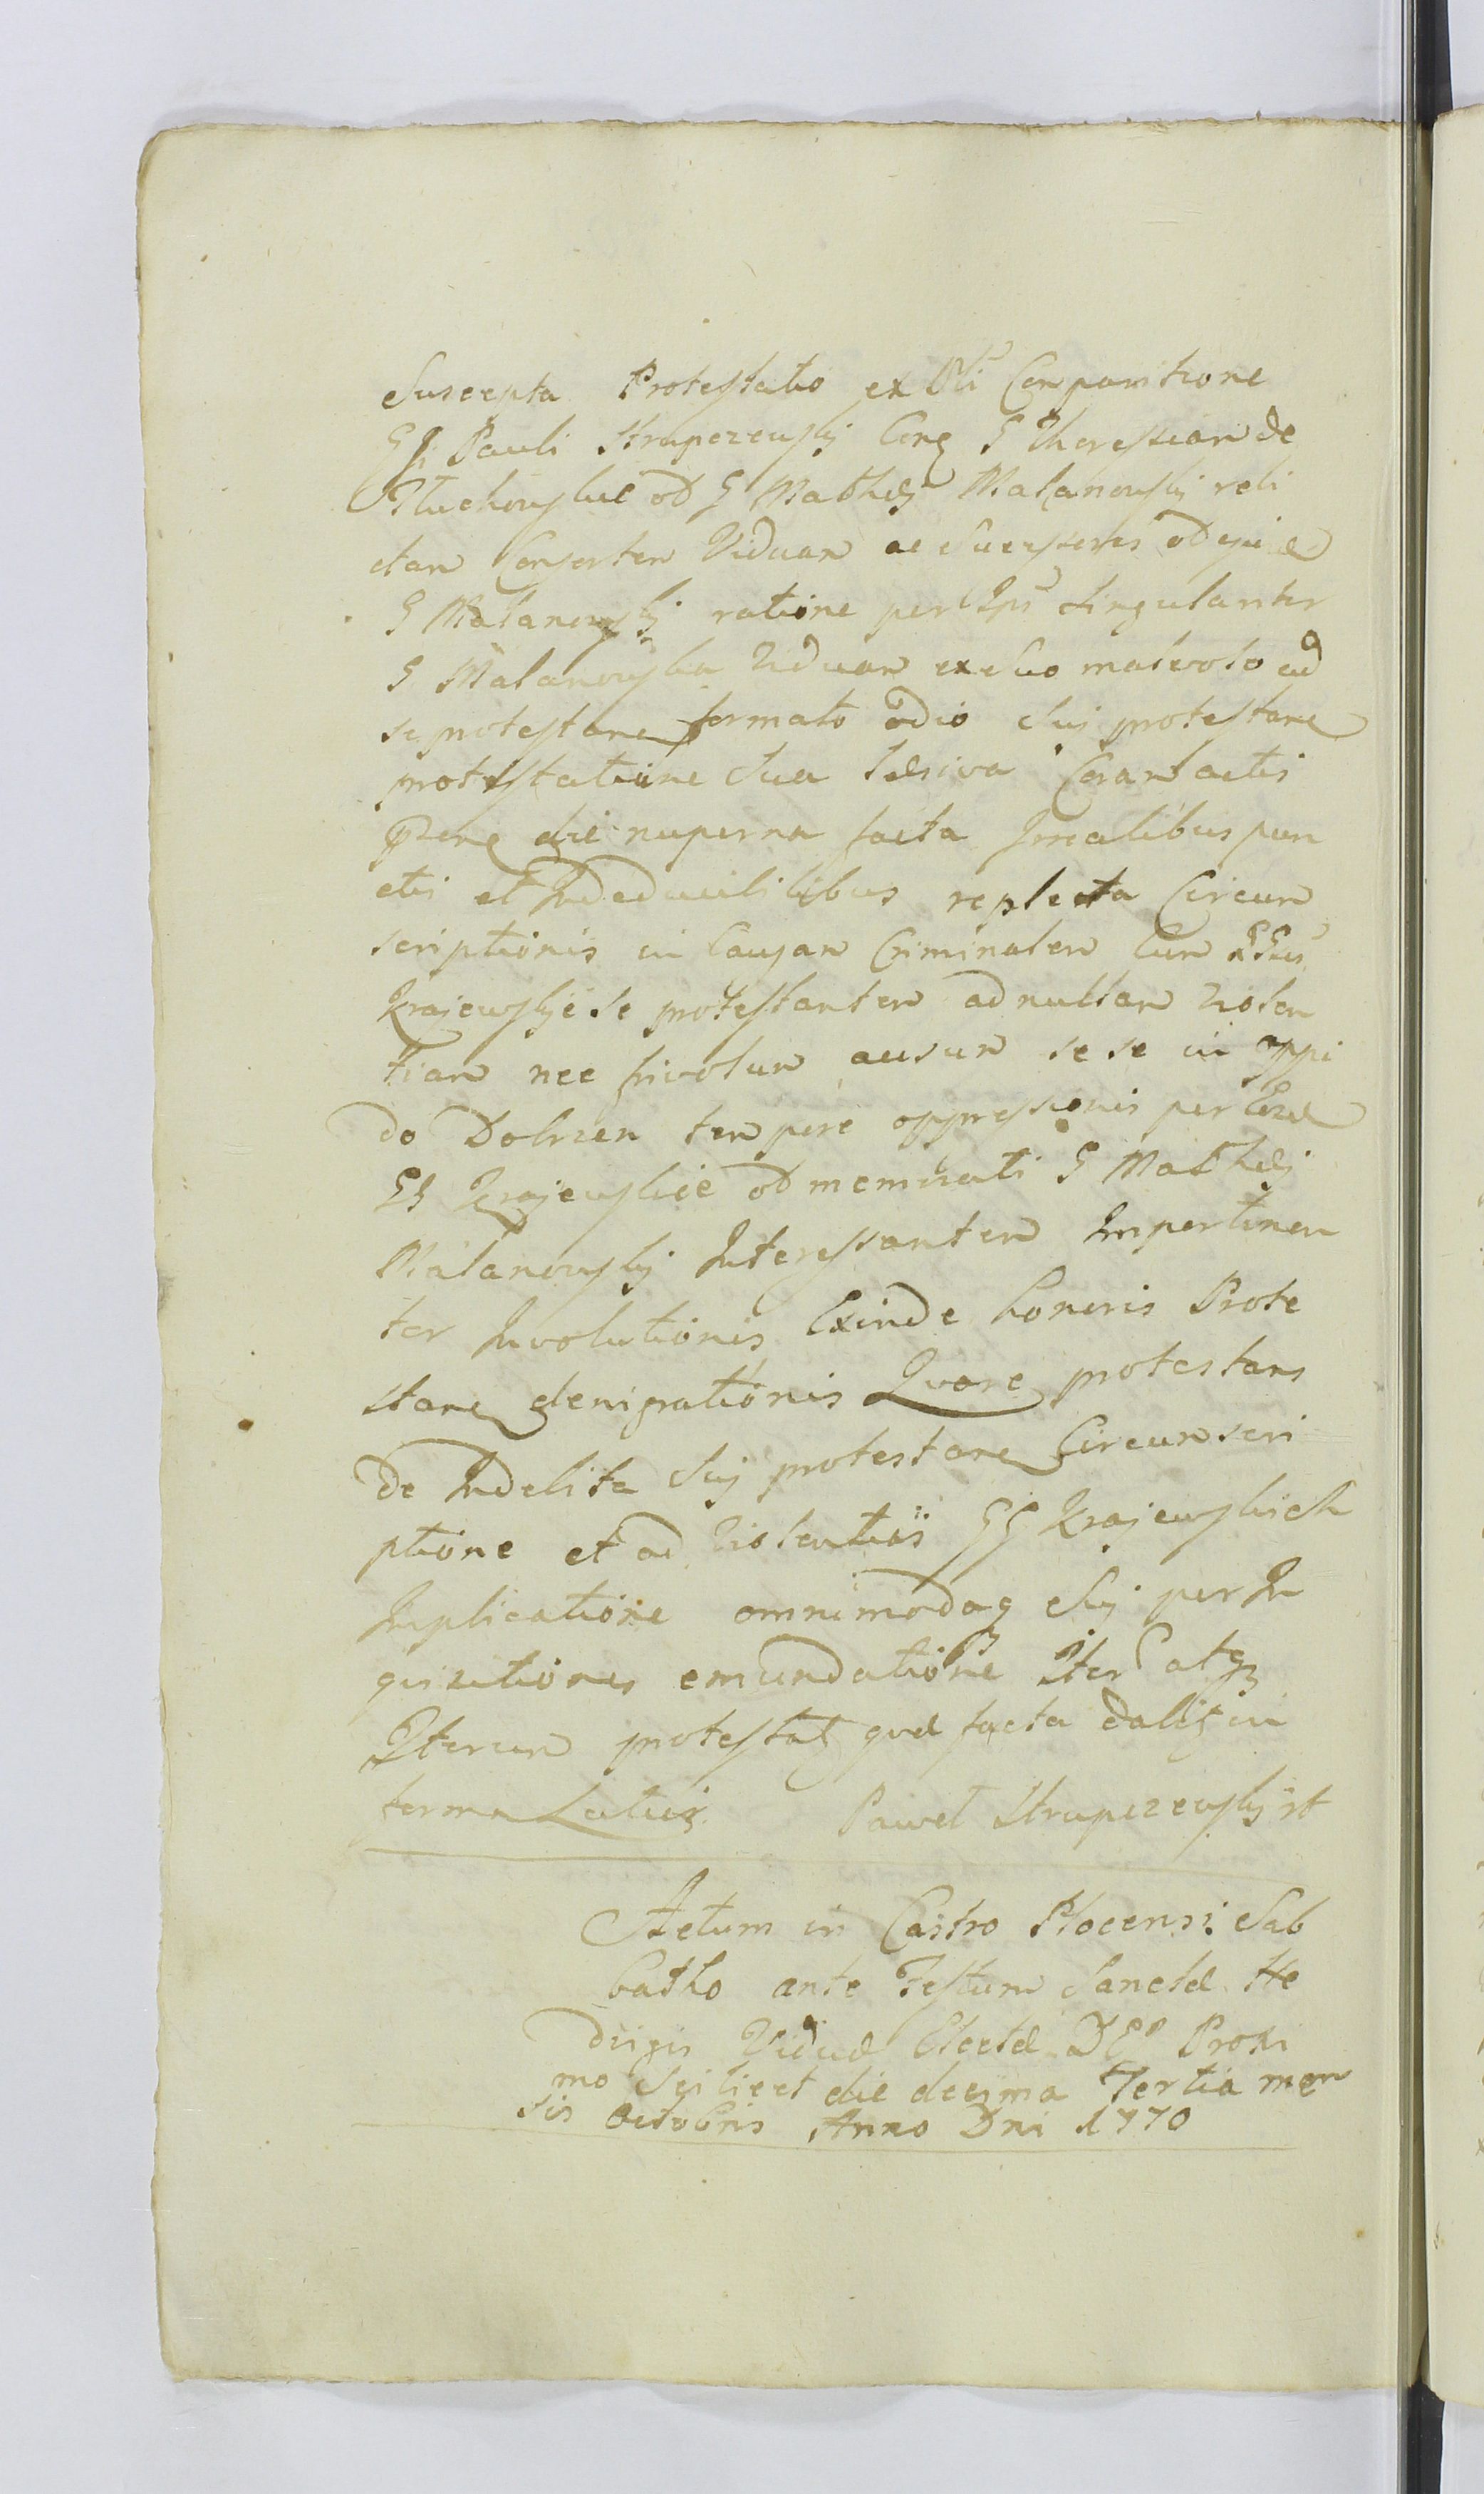 Suscepta Protestatio ex Obli Comparitione
G Pauli Strupczewskij Cong G Theressiam de
Pluchowskie od G Mathej Malanowskij reli
ctam Consortem Viduam ac Sucessores
G Malanowskij ratione per Ips Singulariter
G Malanowska Viduam ex Suo malevolo ad
se protestane formato odio Sui protestane
protestatione Sua lesiva Coram actis
die nuperna facta Irrealibus pun
ctis et Indeducilibus repleta Circum
scriptionis in Causam Criminalem Cum
Krajewskie Se protestantem ad nullam Violen
tiam nec frivolum ausum se se in oppi
do Dobrzen tempore oppressionis per
GG Krajewskie od memorati G Mathej
Malanowskij Interessantem Impertinen
ter Involutionis Exinde honoris Prote
stane denigrationis Qvare protestans
de Indebita Sui protestane Circumscri
ptione et ad violentias GG Krajewskich
Implicatione omnimodaq Sui per In
quisitiones emundatione Iter atq
Iterum protestat qvæ facta dalis in
forma Latius Pawel Strupczewskij
Actum in Castro Plocensi Sab
batho ante Festum Sanctæ He
dvigis Viduæ Electæ DEo Proxi
mo Scilicet die decima Tertia men
sis Octobris Anno Dni 1770